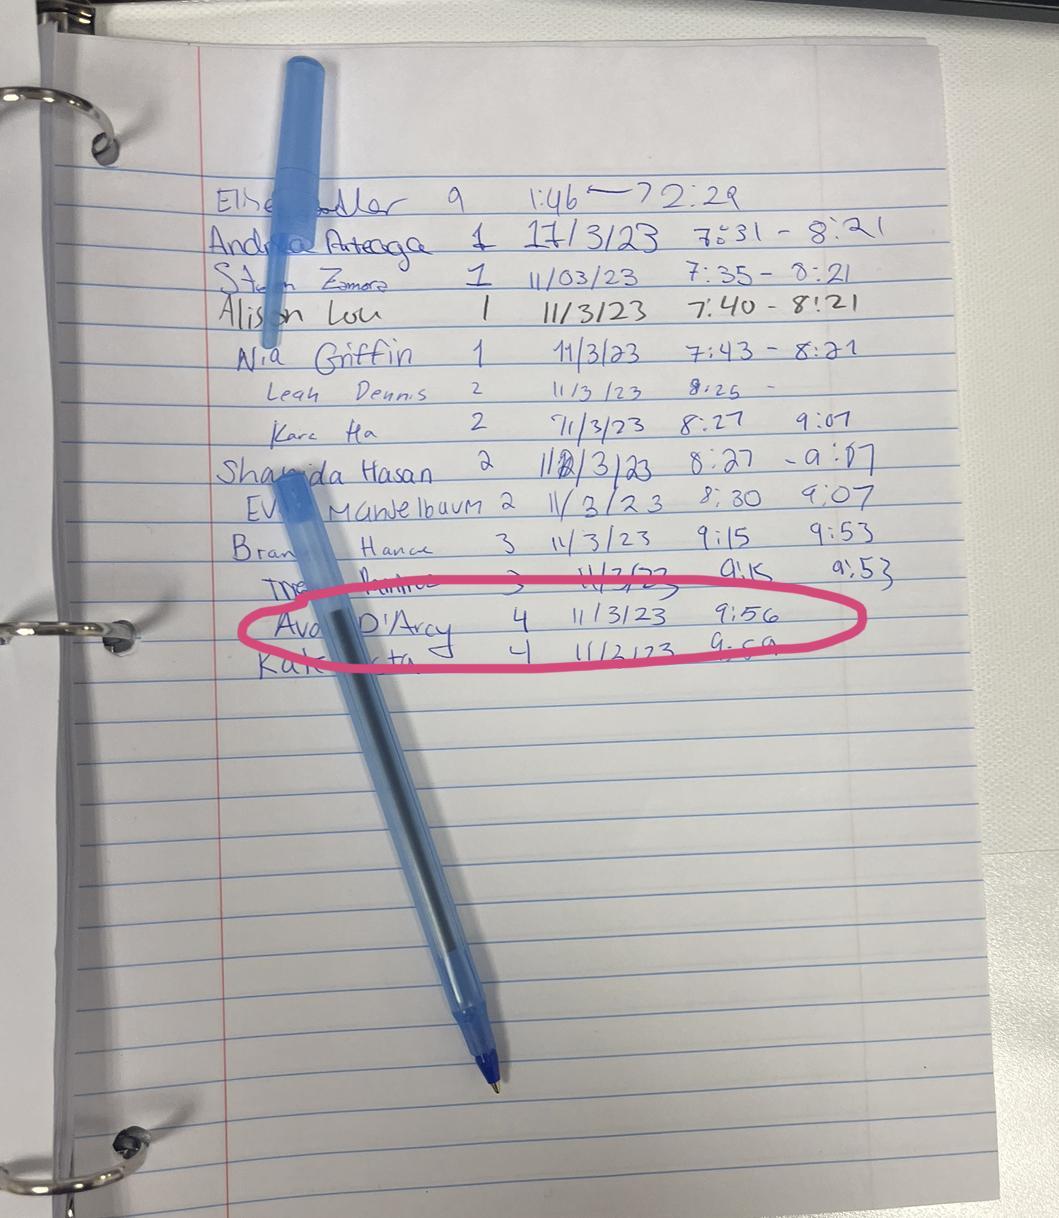 9 1:46 → 2:29
Arteaga 1 11/3/23 7:31 - 8:21
Zamora 1 11/03/23 7:35 - 8:21
Alison Lou 1 11/3/23 7:40 - 8:21
Nia Griffin 1 11/3/23 7:43 - 8:21
Leah Dennis 2 11/3/23 8:25 -
Kara Ha 2 11/3/23 8:27 9:07
Hasan 2 11/3/23 8:27 - 9:07
Mandelbaum 2 11/3/23 8:30 9:07
Hance 3 11/3/23 9:15 9:53
3 11/3/23 9:15 9:53
Ava D'Arcy 4 11/3/23 9:56
4 11/3/23 9:59